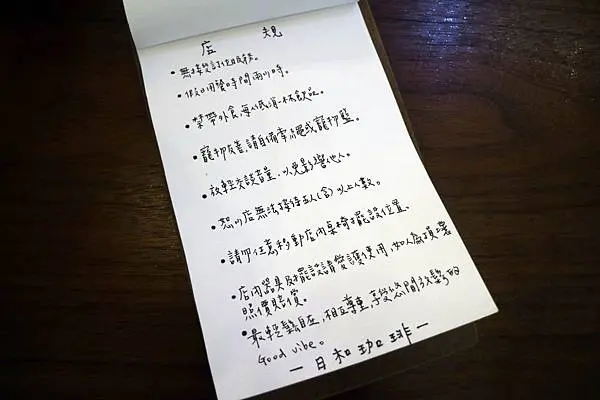 店 規
•無接受訂位服務。
•假日用餐時間兩小時。
•禁帶外食,每人低消一杯飲品。
•寵物友善,請自備牽繩或寵物籃。
•放輕交談音量,以免影響他人。
•恕小店無法接待五人(含)以上人數。
•請勿任意移動店內桌椅擺設位置。
•店內器具及擺設請愛護使用,如人為損壞
照價賠償。
•最輕鬆自在,相互尊重,享受悠閒放鬆的
Good vibe。
—日和珈琲—